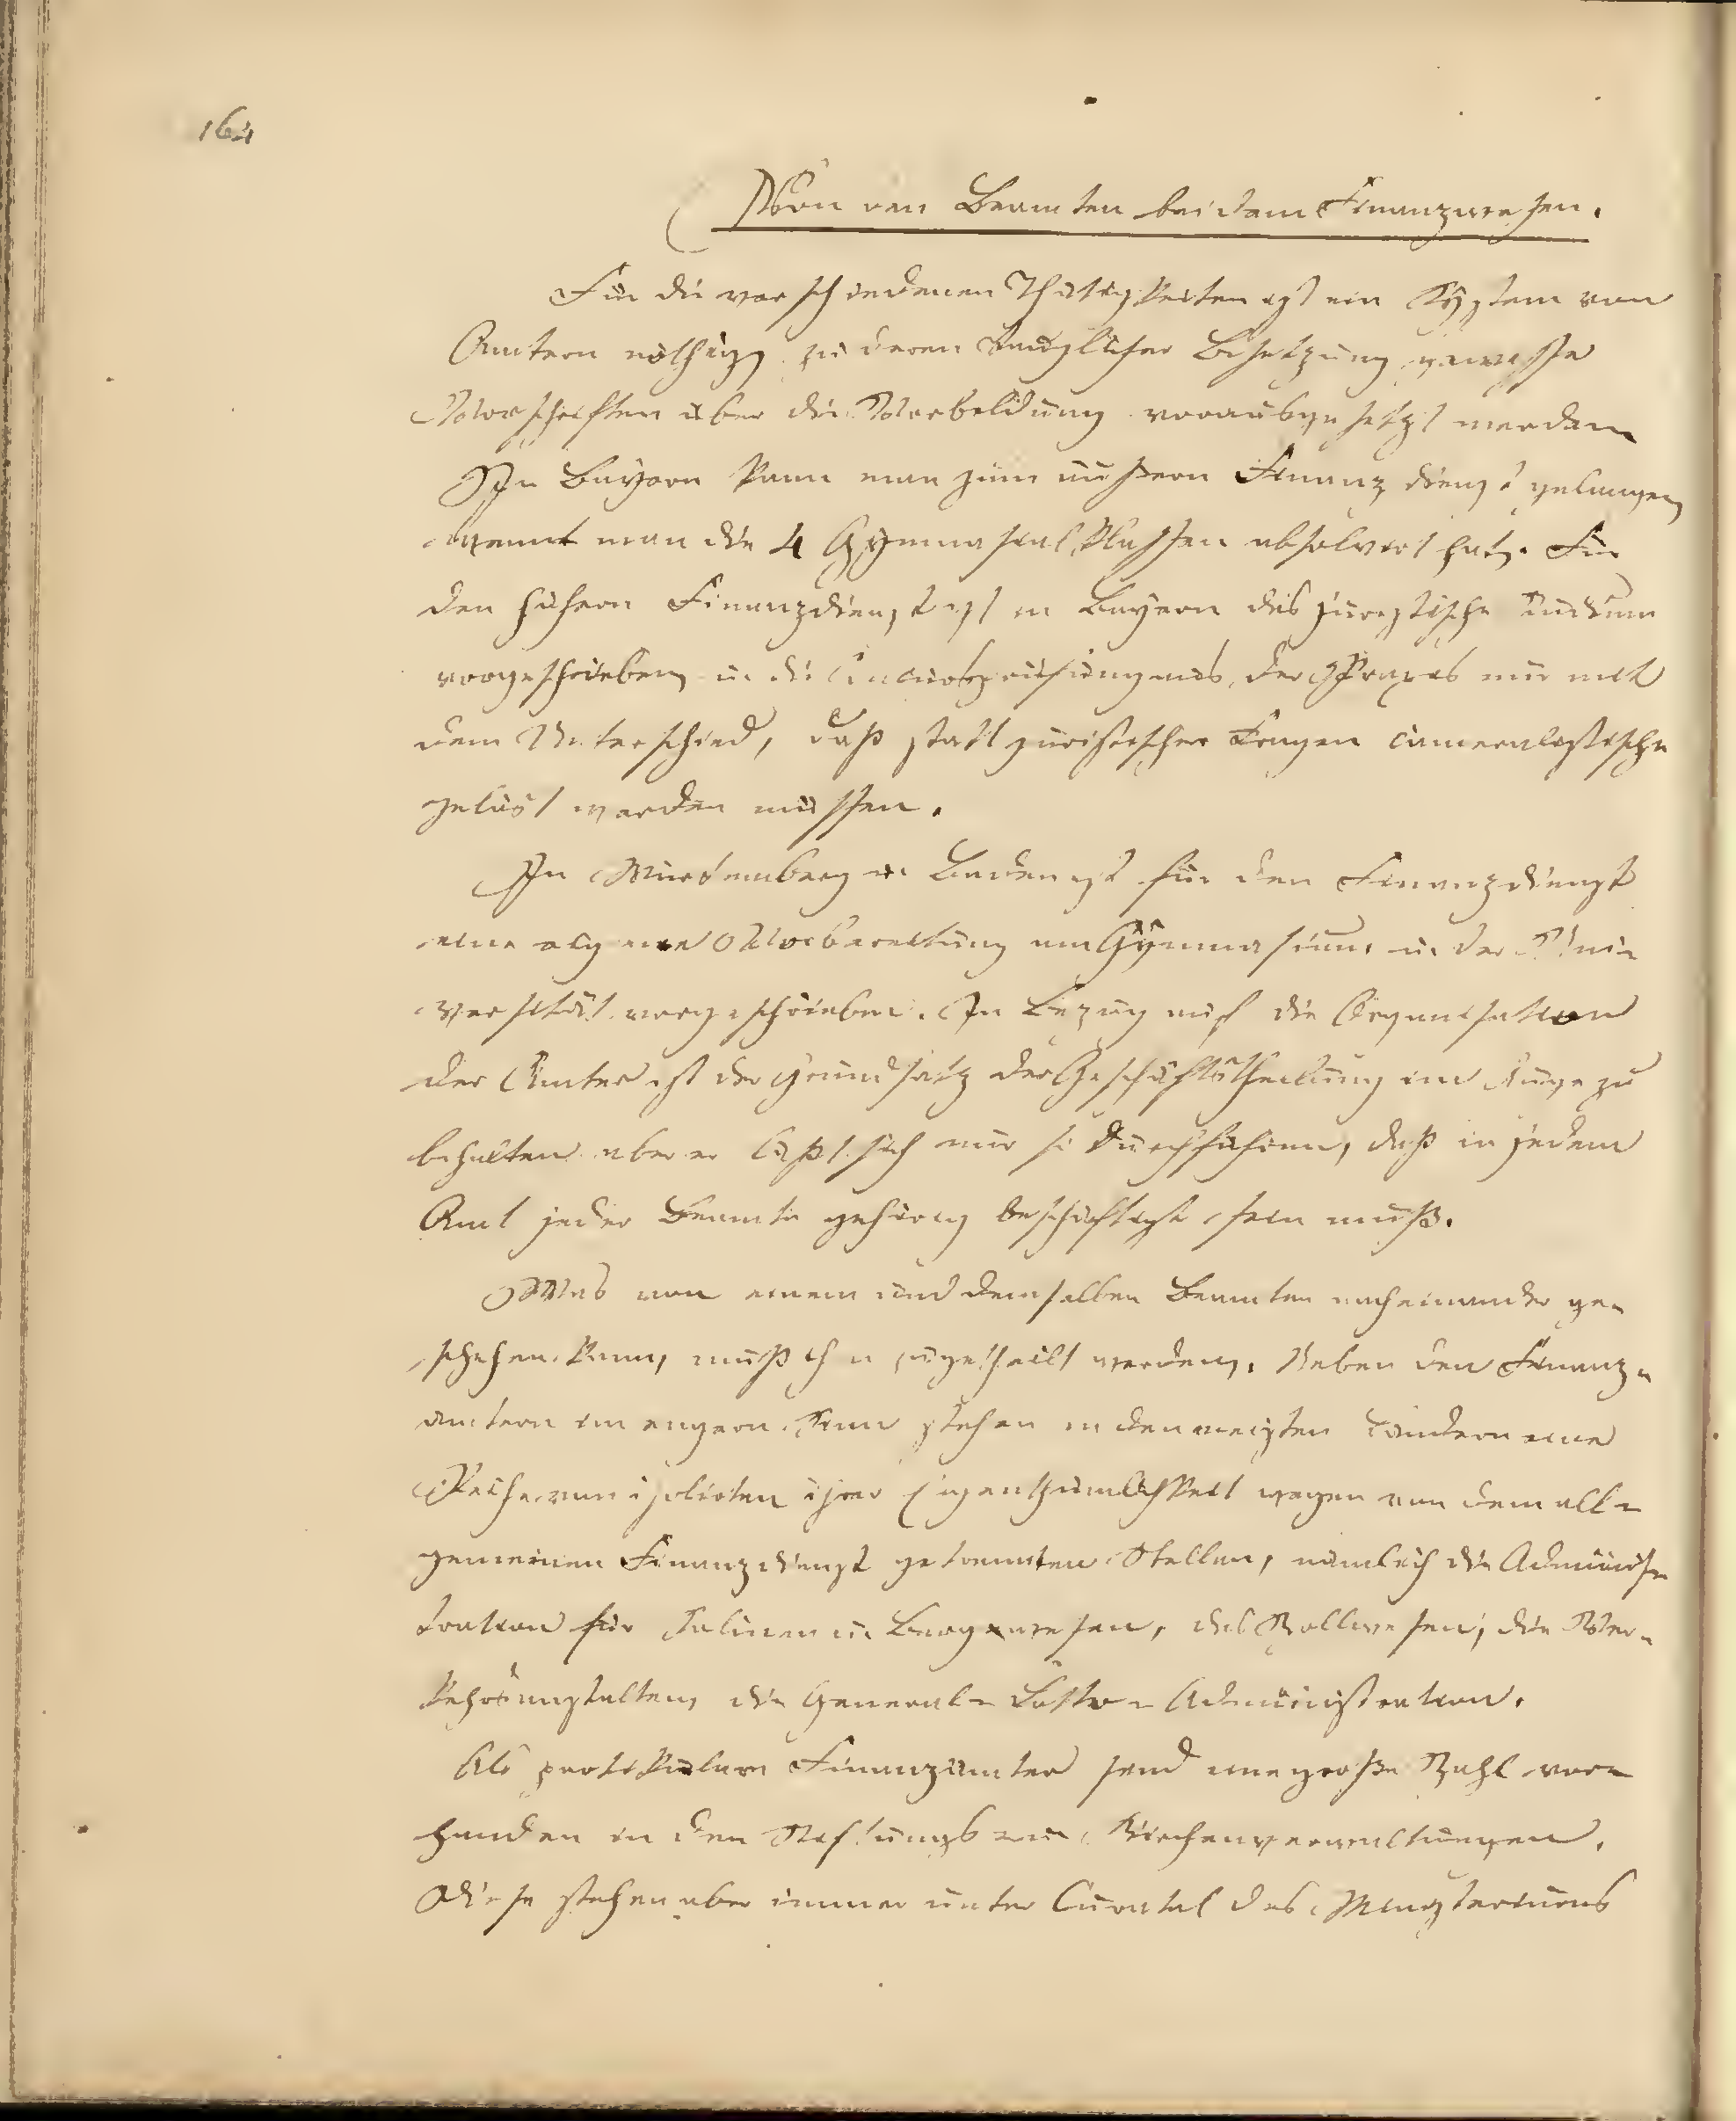 164
Von den Beamten bei dem Finanzwesen.
Für die verschiedenen Thätigkeiten ist ein System von
Ämtern nöthig, zu deren tauglicher Besetzung gewisse
Vorschriften über die Vorbildung vorausgesetzt werden
In Bayern kann man zum äußern Finanzdienst gelangen
wenn man die 4 Gymnasialklassen absolvirt hat. Für
den höhern Finanzdienst ist in Bayern das juristische Studium
vorgeschrieben u. die Concursprüfung aus der Praxis nur mit
dem Unterschied, daß statt juristischer Fragen cameralistische
gelöst werden müssen.
In Würtemberg u. Baden ist für den Finanzdienst
eine eigene Vorbereitung am Gymnasium u. der Uni-
versität vorgeschrieben. In Bezug auf die Organisation
der Ämter ist der Grundsatz der Geschäftstheilung im Auge zu
behalten aber er läßt sich nur so durchführen, daß in jedem
Amt jeder Beamte gehörig beschäftigt sein muß.
Was von einem und demselben Beamten nacheinander ge-
schehen kann, muß ihm zugetheilt werden. Neben den Finanz-
ämtern im engern Sinn stehen in den meisten Ländern eine
Reihe von isolirten ihrer Eigenthümlichkeit wegen von dem all-
gemeinen Finanzdienst getrennten Stellen, nämlich die Adminis-
tration für Salinen u. Bergwesen, das Zollwesen, die Ver-
kehrsanstalten, die General-Lotto-Administration.
Als partikulare Finanzämter sind eine große Zahl vor-
handen in den Stiftungs und Kirchenverwaltungen.
Diese stehen aber immer unter Curatel des Ministeriums